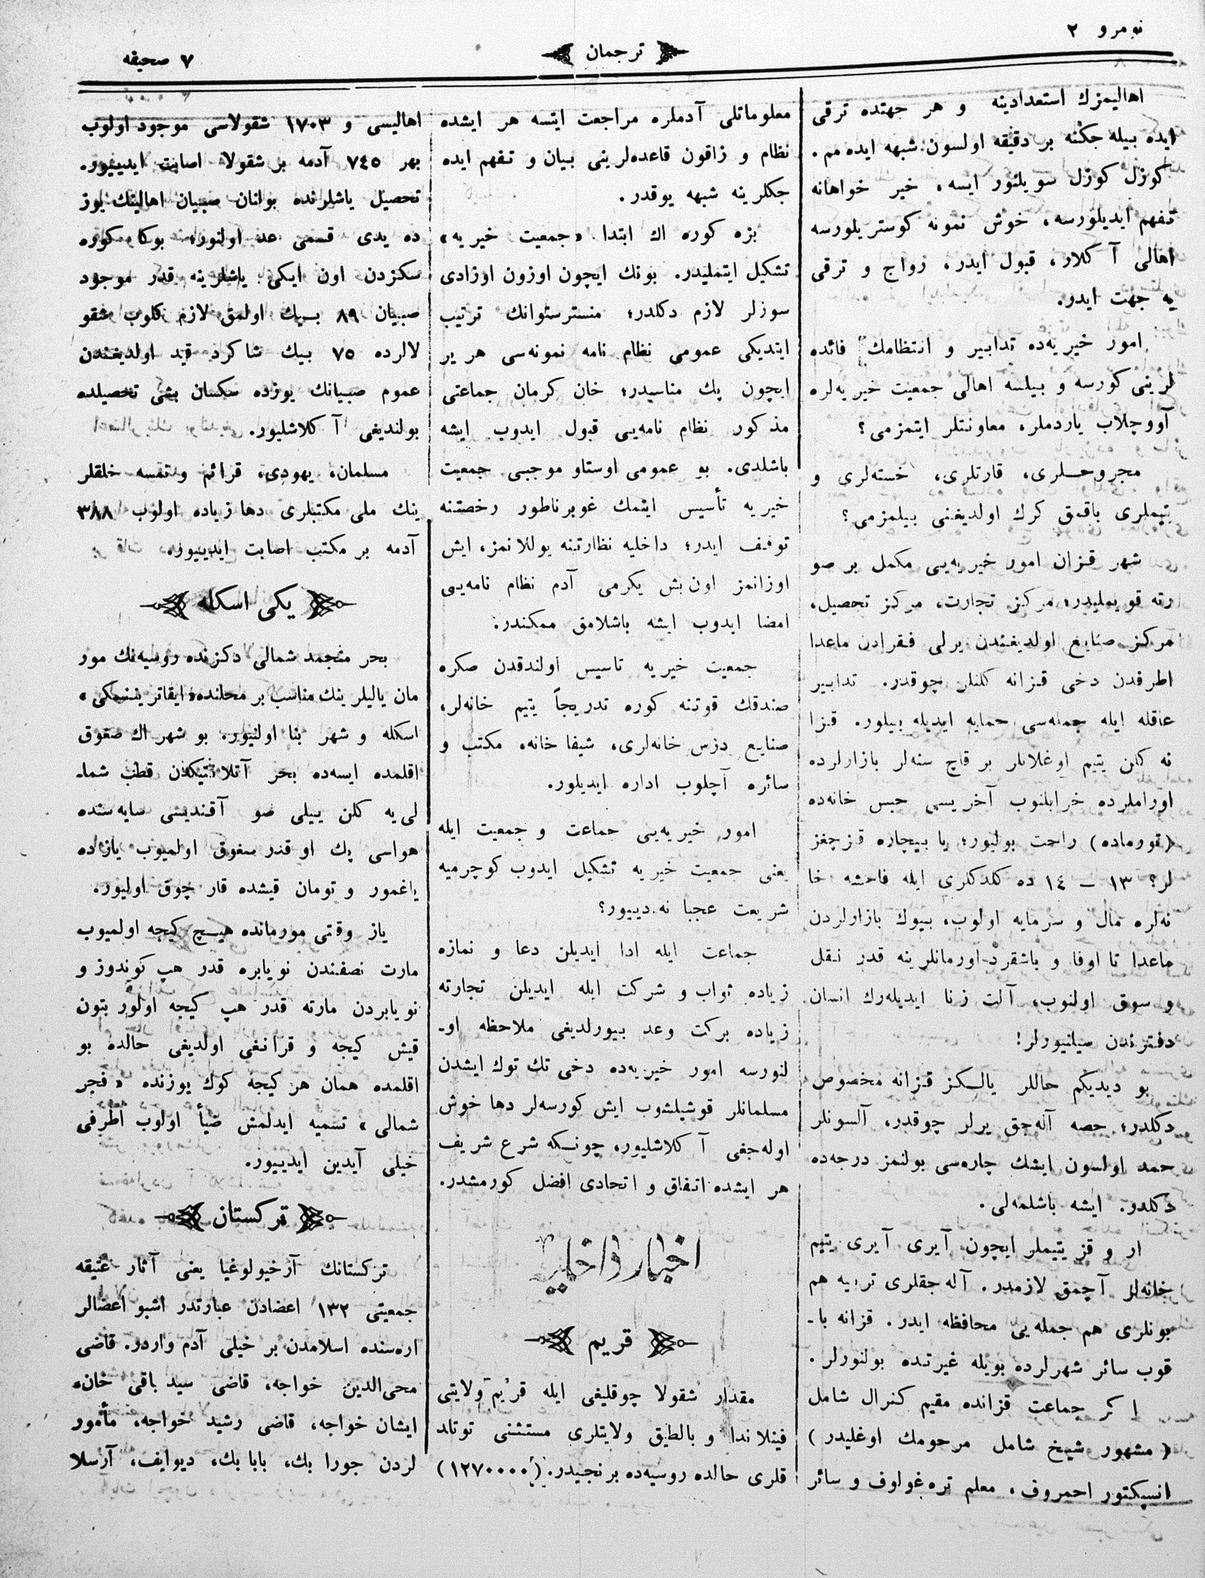 نومرو ٢
ترجمان
٧ صحیفه
اهالیمزك استعدادینه و هر جهتده ترقی
ایده بیله جكنه بر دقیقه اولسون شبهه ایده مم.
كوزل كوزل سویلنور ایسه، خیر خواهانه
تفهم ایدیلورسه، خوش نمونه كوستریلورسه
اهالی آكلار، قبول ایدر، رواج و ترقی
یه جهت ایدر.
امور خیریه‌ده تدابیر و انتظامك فائده
لرینی كورسه و بیلسه اهالی جمعیت خیریه‌لره
آووچلاب یاردملر، معاونتلر ایتمزمی؟
مجروحلری، قارتلری، خسته‌لری و
یتیملری باقمق كرك اولدیغنی بیلمزمی؟
شهر قزان امور خیریه‌یی مكمل بر صو
رته قویملیدر؛ مركز تجارت، مركز تحصیل،
مركز صنایع اولدیغندن یرلی فقرادن ماعدا
اطرفدن دخی قزانه كلنلر چوقدر. تدابیر
عاقله ایله جمله‌سی حمایه ایدیله بیلور. قزا
نه كلن یتیم اوغلانلر بر قاچ سنه‌لر بازارلرده
اوراملرده خرابلنوب آخریسی حبس خانه‌ده
(تورماده) راحت بولیور؛ یا بیچاره قزچغز
لر؟ ١٣ – ١٤ ده كلدكلری ایله فاحشه خا
نه‌لره مال و سرمایه اولوب، بیوك بازارلردن
ماعدا تا اوفا و باشقرد اورمانلرینه قدر نقل
و سوق اولنوب، آلت زنا ایدیله‌رك انسان
دفترندن سیلنیورلر!
بو دیدیكم حاللر یالكز قزانه مخصوص
دكلدر؛ حصه آله‌جق یرلر چوقدر، آلسونلر
حمد اولسون ایشك چاره‌سی بولنمز درجه‌ده
دكلدر. ایشه باشلمه‌لی.
ار و قز یتیملر ایچون آیری آیری یتیم
خانه‌لر آچمق لازمدر. آله جقلری تربیه هم
بونلری هم جمله‌یی محافظه ایدر. قزانه با-
قوب سائر شهرلرده بویله غیرتده بولنورلر.
اكر جماعت قزانده مقیم كنرال شامل
(مشهور شیخ شامل مرحومك اوغلیدر)
انسپكتور احمروف، معلم تره‌غولوف و سائر
معلوماتلی آدملره مراجعت ایتسه هر ایشده
نظام و زاقون قاعده‌لرینی بیان و تفهم ایده
جكلرینه شبهه یوقدر.
بزه كوره اك ابتدا «جمعیت خیریه»
تشكیل ایتملیدر. بونك ایچون اوزون اوزادی
سوزلر لازم دكلدر؛ منسترستوانك ترتیب
ایتدیكی عمومی نظام نامه نمونه‌سی هر یر
ایچون پك مناسیدر؛ خان كرمان جماعتی
مذكور نظام نامه‌یی قبول ایدوب ایشه
باشلدی. بو عمومی اوستاو موجبی جمعیت
خیریه تأسیس ایتمك غوبرناطور رخصتنه
توقیف ایدر؛ داخلیه نظارتینه یوللانمز، ایش
اوزانمز اون بش یكرمی آدم نظام نامه‌یی
امضا ایدوب ایشه باشلامق ممكندر.
جمعیت خیریه تاسیس اولندقدن صكره
صندقك قوتنه كوره تدریجاً یتیم خانه‌لر،
صنایع درس خانه‌لری، شیفا خانه، مكتب و
سائره آچلوب اداره ایدیلور.
امور خیریه‌یی جماعت و جمعیت ایله
یعنی جمعیت خیریه تشكیل ایدوب كوچرمیه
شریعت عجبا نه دییور؟
جماعت ایله ادا ایدیلن دعا و نمازه
زیاده ثواب و شركت ایله ایدیلن تجارته
زیاده بركت وعد بیورلدیغی ملاحظه او-
لنورسه امور خیریه‌ده دخی تك توك ایشدن
مسلمانلر قوشیلشوب ایش كورسه‌لر دها خوش
اوله‌جغی آكلاشلیور، چونكه شرع شریف
هر ایشده اتفاق و اتحادی افضل كورمشدر.
اخبار داخلیه
قریم
مقدار شقولا چوقلیغی ایله قریم ولایتی
فینلاندا و بالطیق ولایتلری مستثنی توتلد
قلری حالده روسیه‌ده برنجیدر. (١٢٧٠٠٠٠)
اهالیسی و ١٧٠٣ شقولاسی موجود اولوب
بهر ٧٤٥ آدمه بر شقولا اصابت ایدییور.
تحصیل یاشلرنده بولنان صبیان اهالینك یوز
ده یدی قسمی عد اولنور؛ بوكا كوره
سكزدن اون ایكی یاشلرینه قدر موجود
صبیان ٨٩ بیك اولمق لازم كلوب شقو
لالرده ٧٥ بیك شاكرد قید اولدیغندن
عموم صبیانك یوزده سكسان بشی تحصیلده
بولندیغی آكلاشلیور.
مسلمان، یهودی، قرائم و نمسه خلقلر
ینك ملی مكتبلری دها زیاده اولوب ٣٨٨
آدمه بر مكتب اصابت ایدییور.
یكی اسكله
بحر منجمد شمالی دكزنده روسیه‌نك مور
مان یالیلرینك مناسب بر محلنده «ایقاترینینسكی»
اسكله و شهر بنا اولنیور. بو شهر اك صغوق
اقلمده ایسه‌ده بحر آتلانتیكدن قطب شما-
لی‌یه كلن ییلی صو آقندیسی سایه‌سنده
هواسی پك او قدر سغوق اولمیوب یازده
یاغمور و تومان قیشده قار چوق اولیور.
یاز وقتی مورمانده هیچ كیجه اولمیوب
مارت نصفندن نویابره قدر هپ كوندوز و
نویابردن مارته قدر هپ كیجه اولور بتون
قیش كیجه و قرانغی اولدیغی حالده بو
اقلمده همان هر كیجه كوك یوزنده «فجر
شمالی» تسمیه ایدلمش ضیأ اولوب اطرفی
خیلی آیدین ایدییور.
تركستان
تركستانك آرخیولوغیا یعنی آثار عتیقه
جمعیتی ١٣٢ اعضادن عبارتدر اشبو اعضالر
اره‌سنده اسلامدن بر خیلی آدم واردر. قاضی
محی‌الدین خواجه، قاضی سید باقی خان،
ایشان خواجه، قاضی رشید خواجه، مأمور
لردن جورا بك، بابا بك، دیوایف، آرسلا